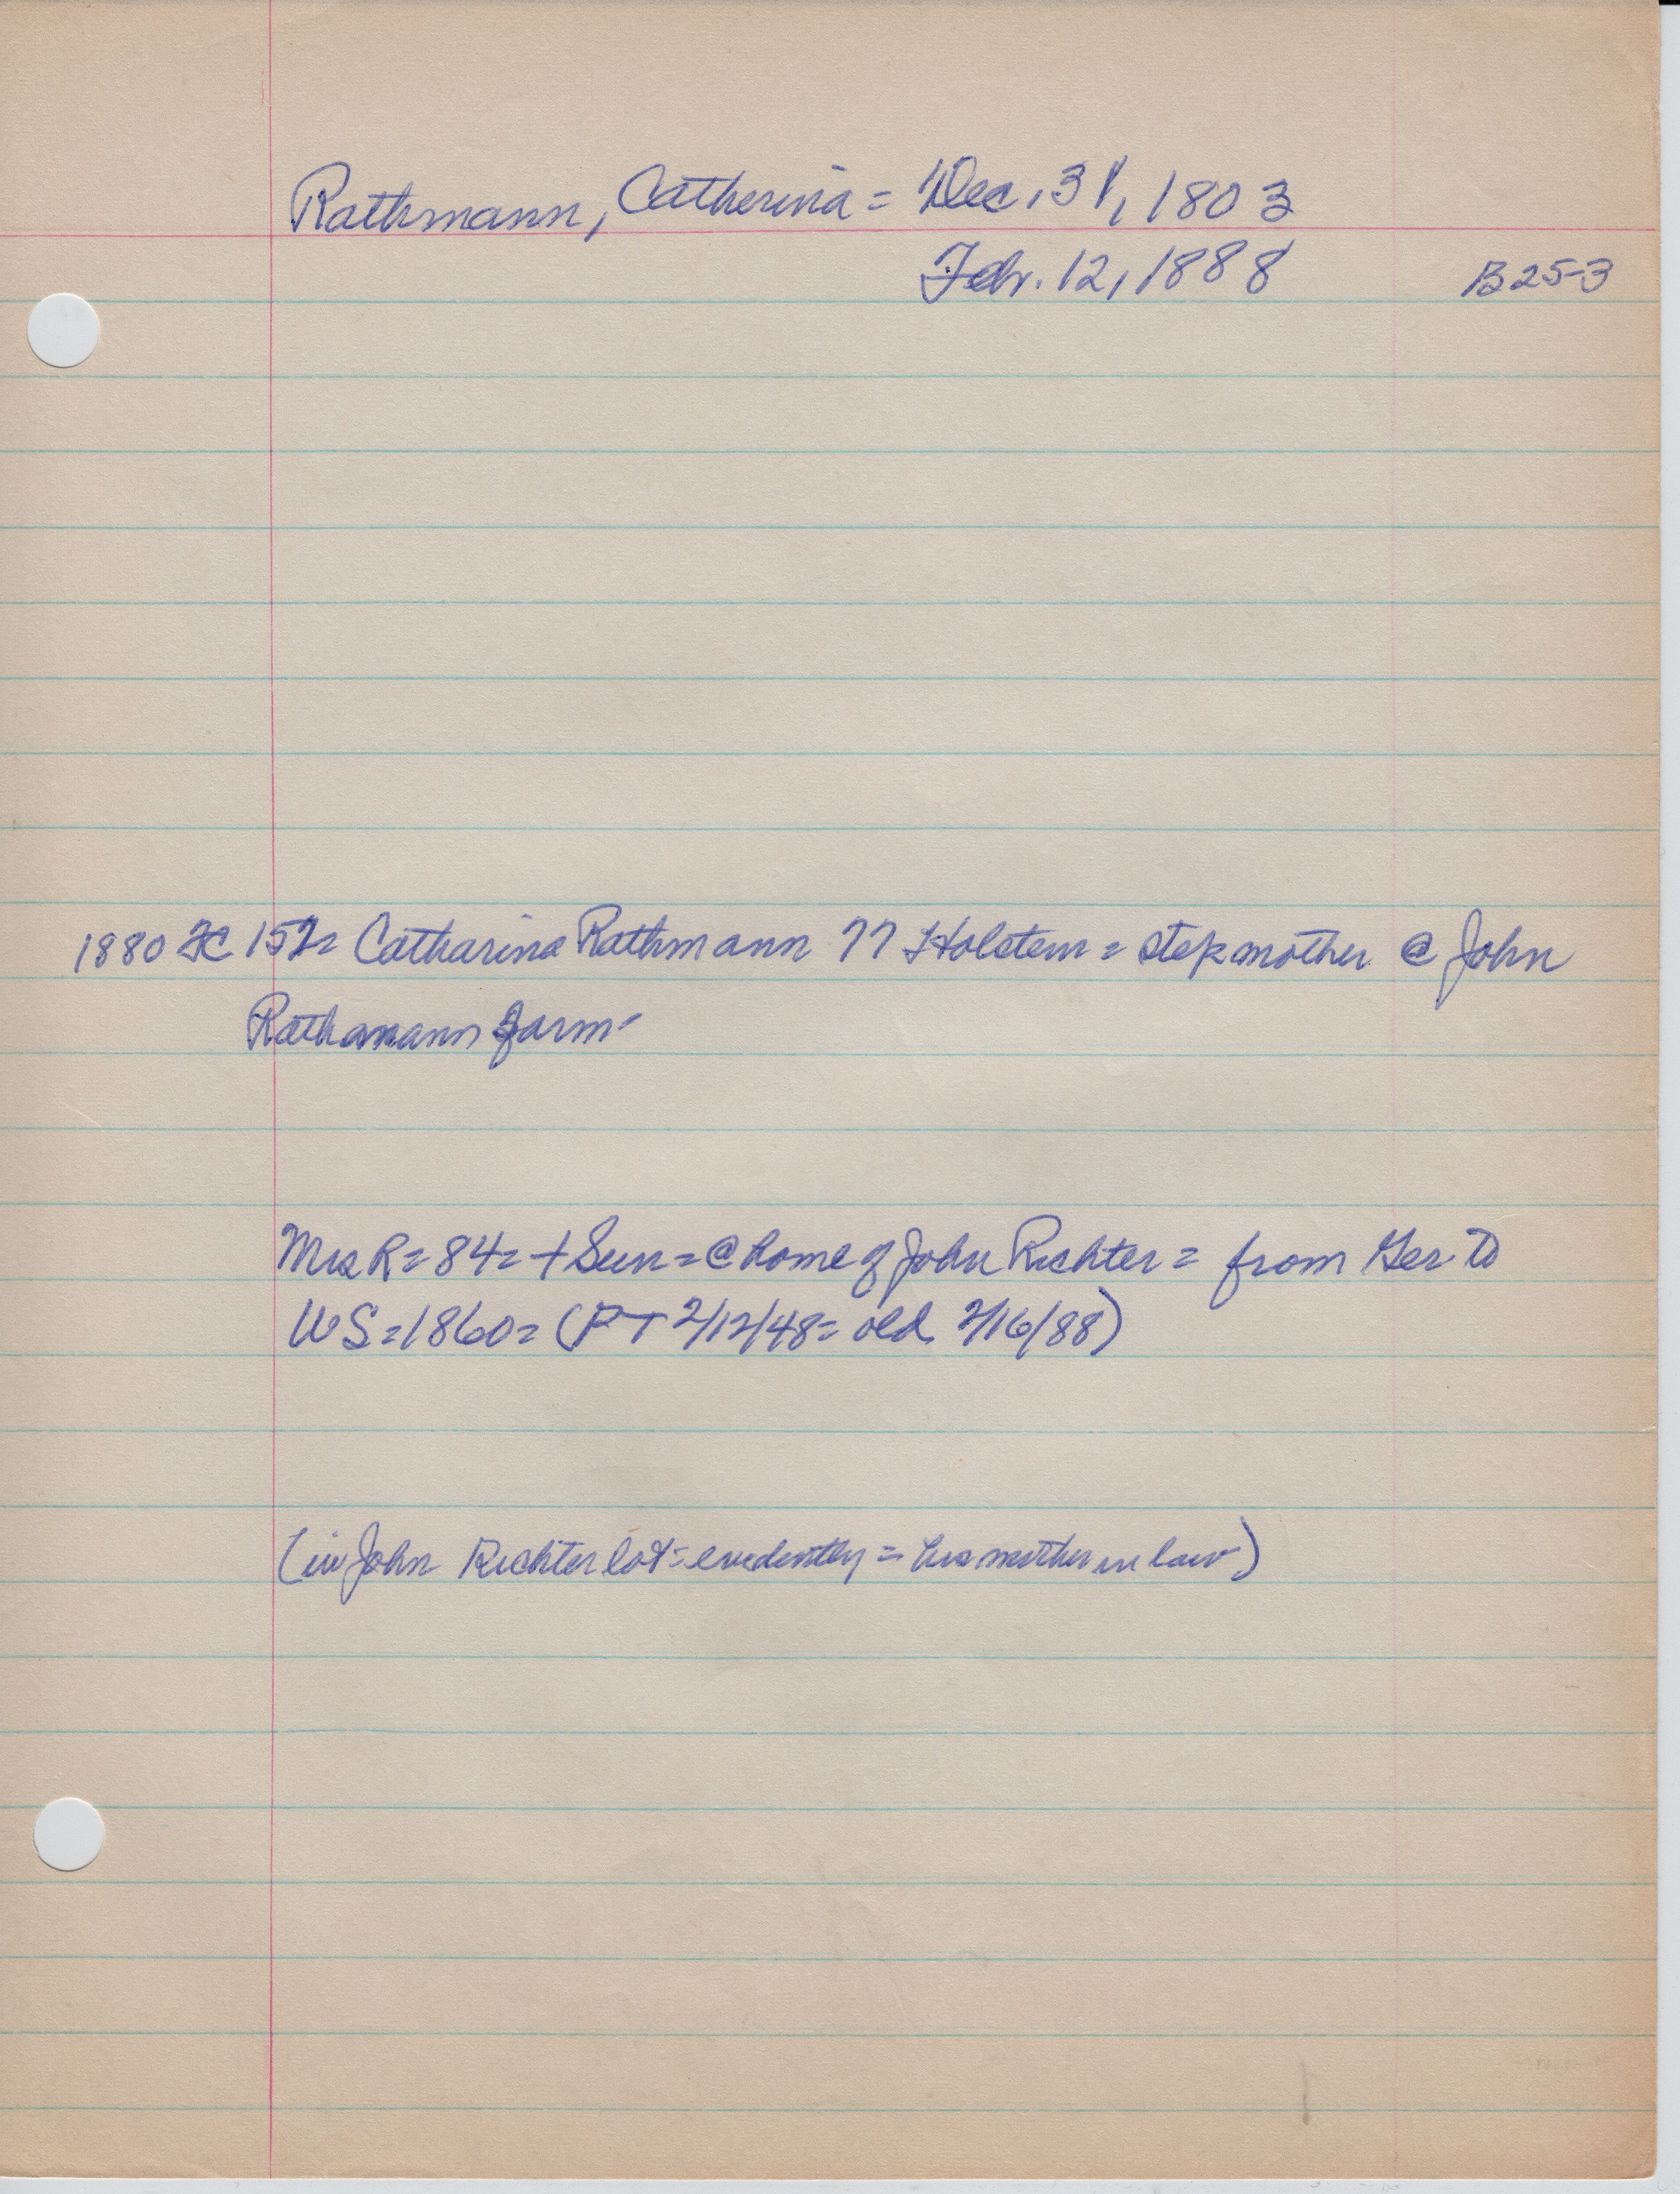 Rathmann, Catherina = Dec. 31, 1803
Febr. 12, 1888 B25-3
1880 FC 152= Catharina Rathmann 77 Holstein = stepmother @ John
Rathmann farm
Mrs R = 84 = + Sun = @ home of John Richter = from Ger to
US = 1860 = (PT 2/12/48 = old 2/16/88)
(in John Richter lot = evidently = his mother in law)